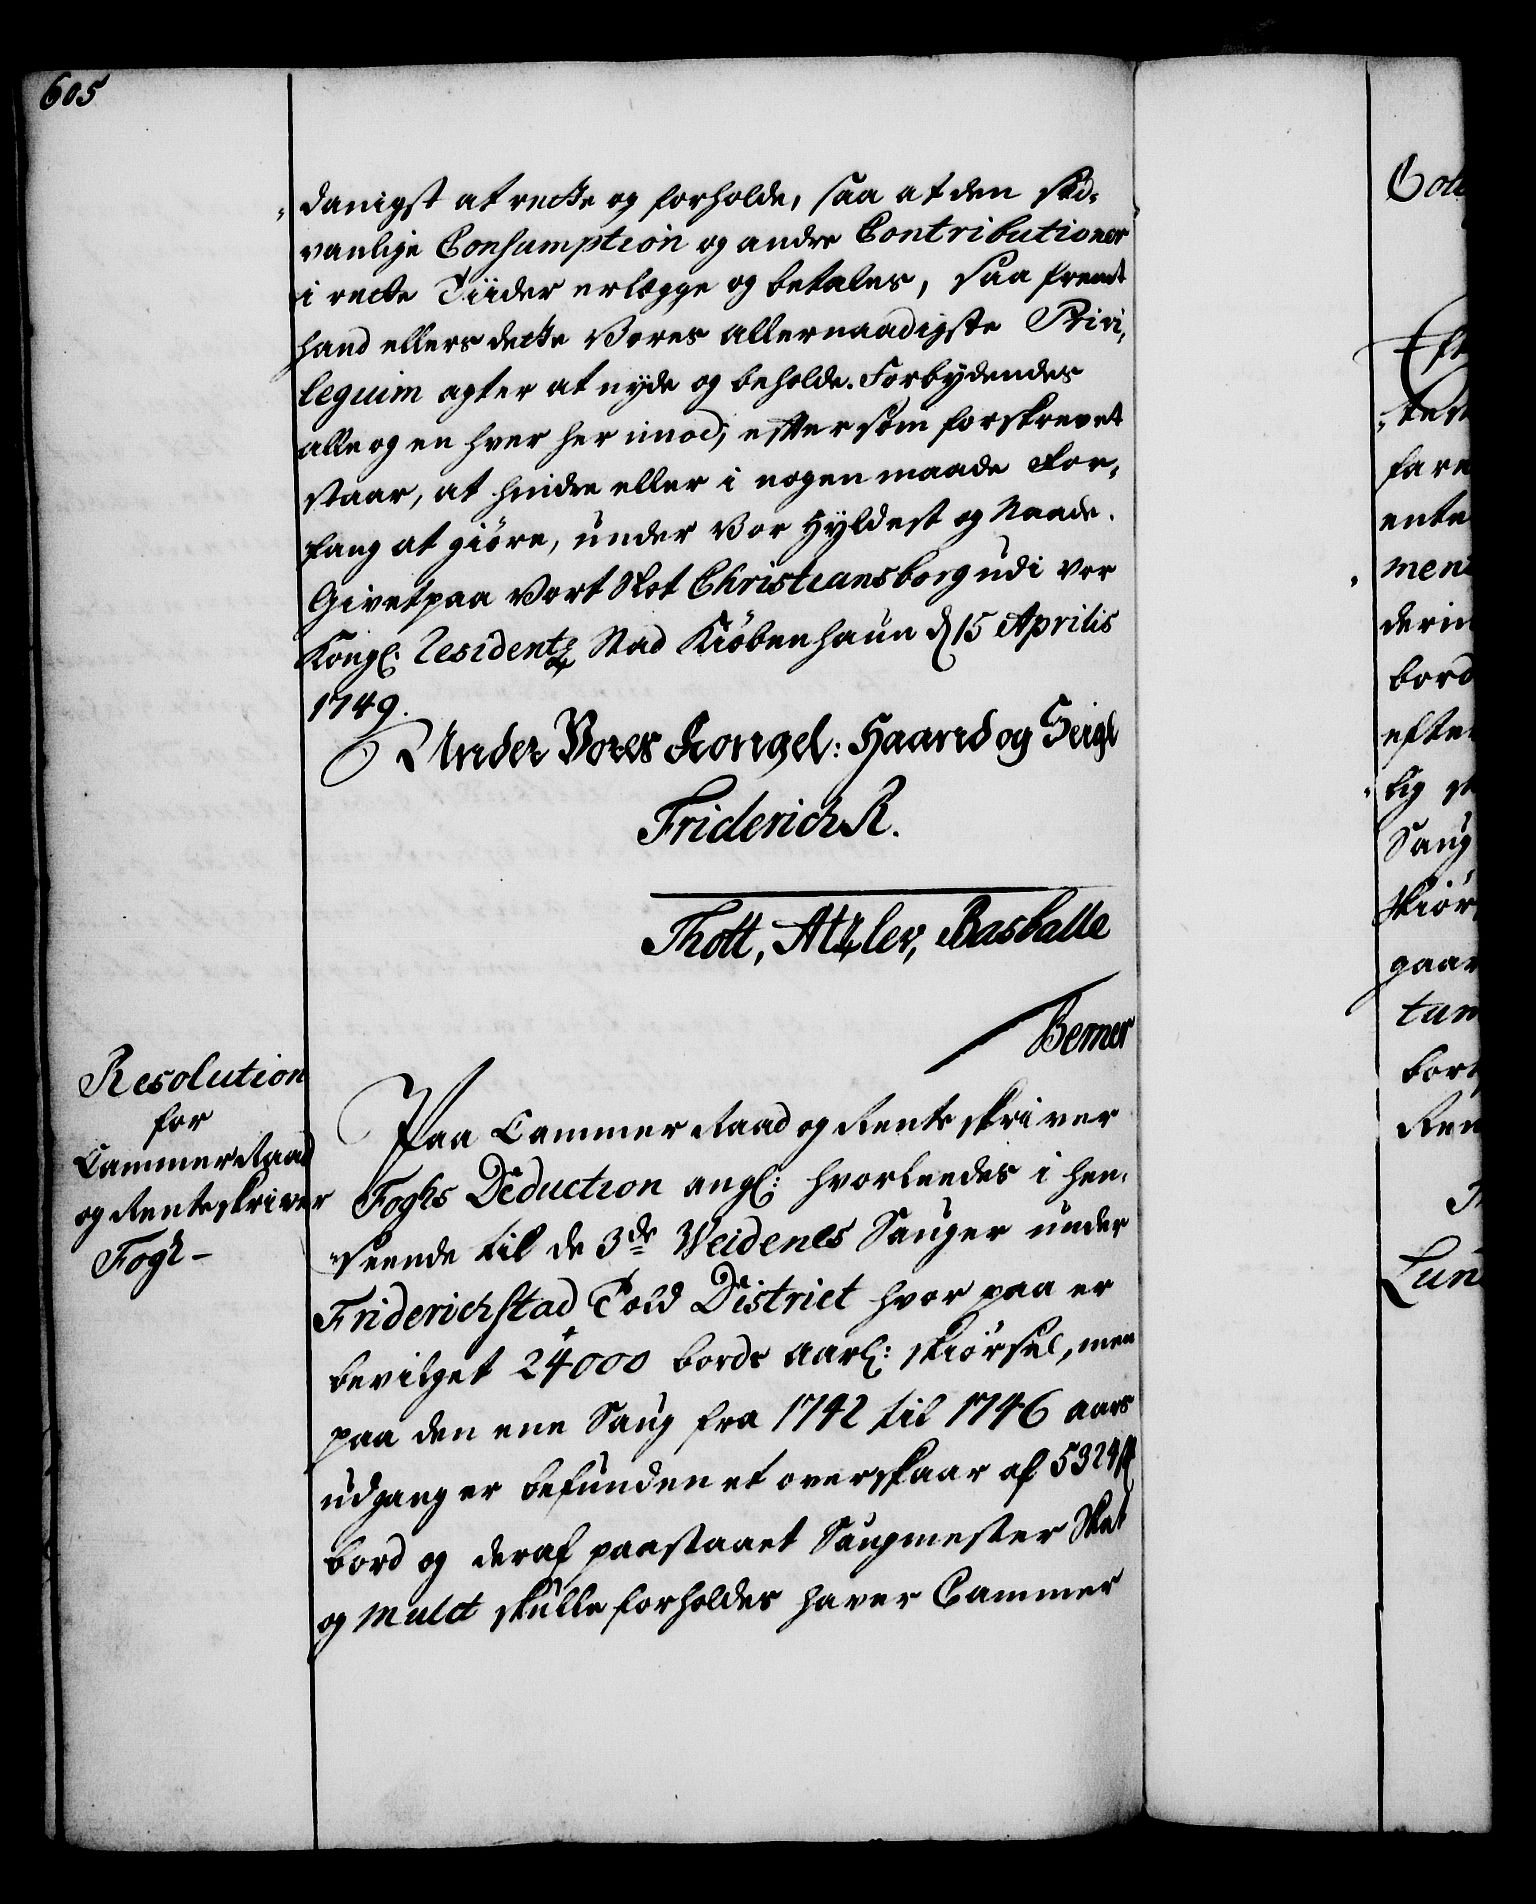 605
danigst at rette og forholde, saa at den sæd-
vanlige Consumption og andre Contributioner
i rette Tiider erlegges og betales, saa fremt
hand ellers dette Vores allernaadigste Privi-
legium agter at nyde og beholde. Forbydendes
alle og en hver her imod, eftersom forskrevet
staar, at hindre eller i nogen maade For-
fang at giöre, under Vor Hyldest og Naade.
Givet paa Vort Slot Christiansborg udi vor
Kongl: Residentz Stad Kiöbenhaun d 15 Aprilis
1749.
Under Vores Kongel: Haand og Seigl
Friderich R.
Thott, Atzlev, Basballe
Berner
Resolution
for
Cammer Raad
og Renteskriver
Fogh-
Paa Cammer Raad og Renteskriver
Foghs Deduction angl: hvorleedes i hen-
seende til de 3de Weidenes Sauger under
Friderichstad Told District hvor paa er
bevilget 24000 bords aarl: skiörsel, men
paa den ene Saug fra 1742 til 1746 aars
udgang er befunden et overskaar af 5324
bord og deraf paastaaet Saugmester Skat
og Mulct skulle forholdes haver Cammer